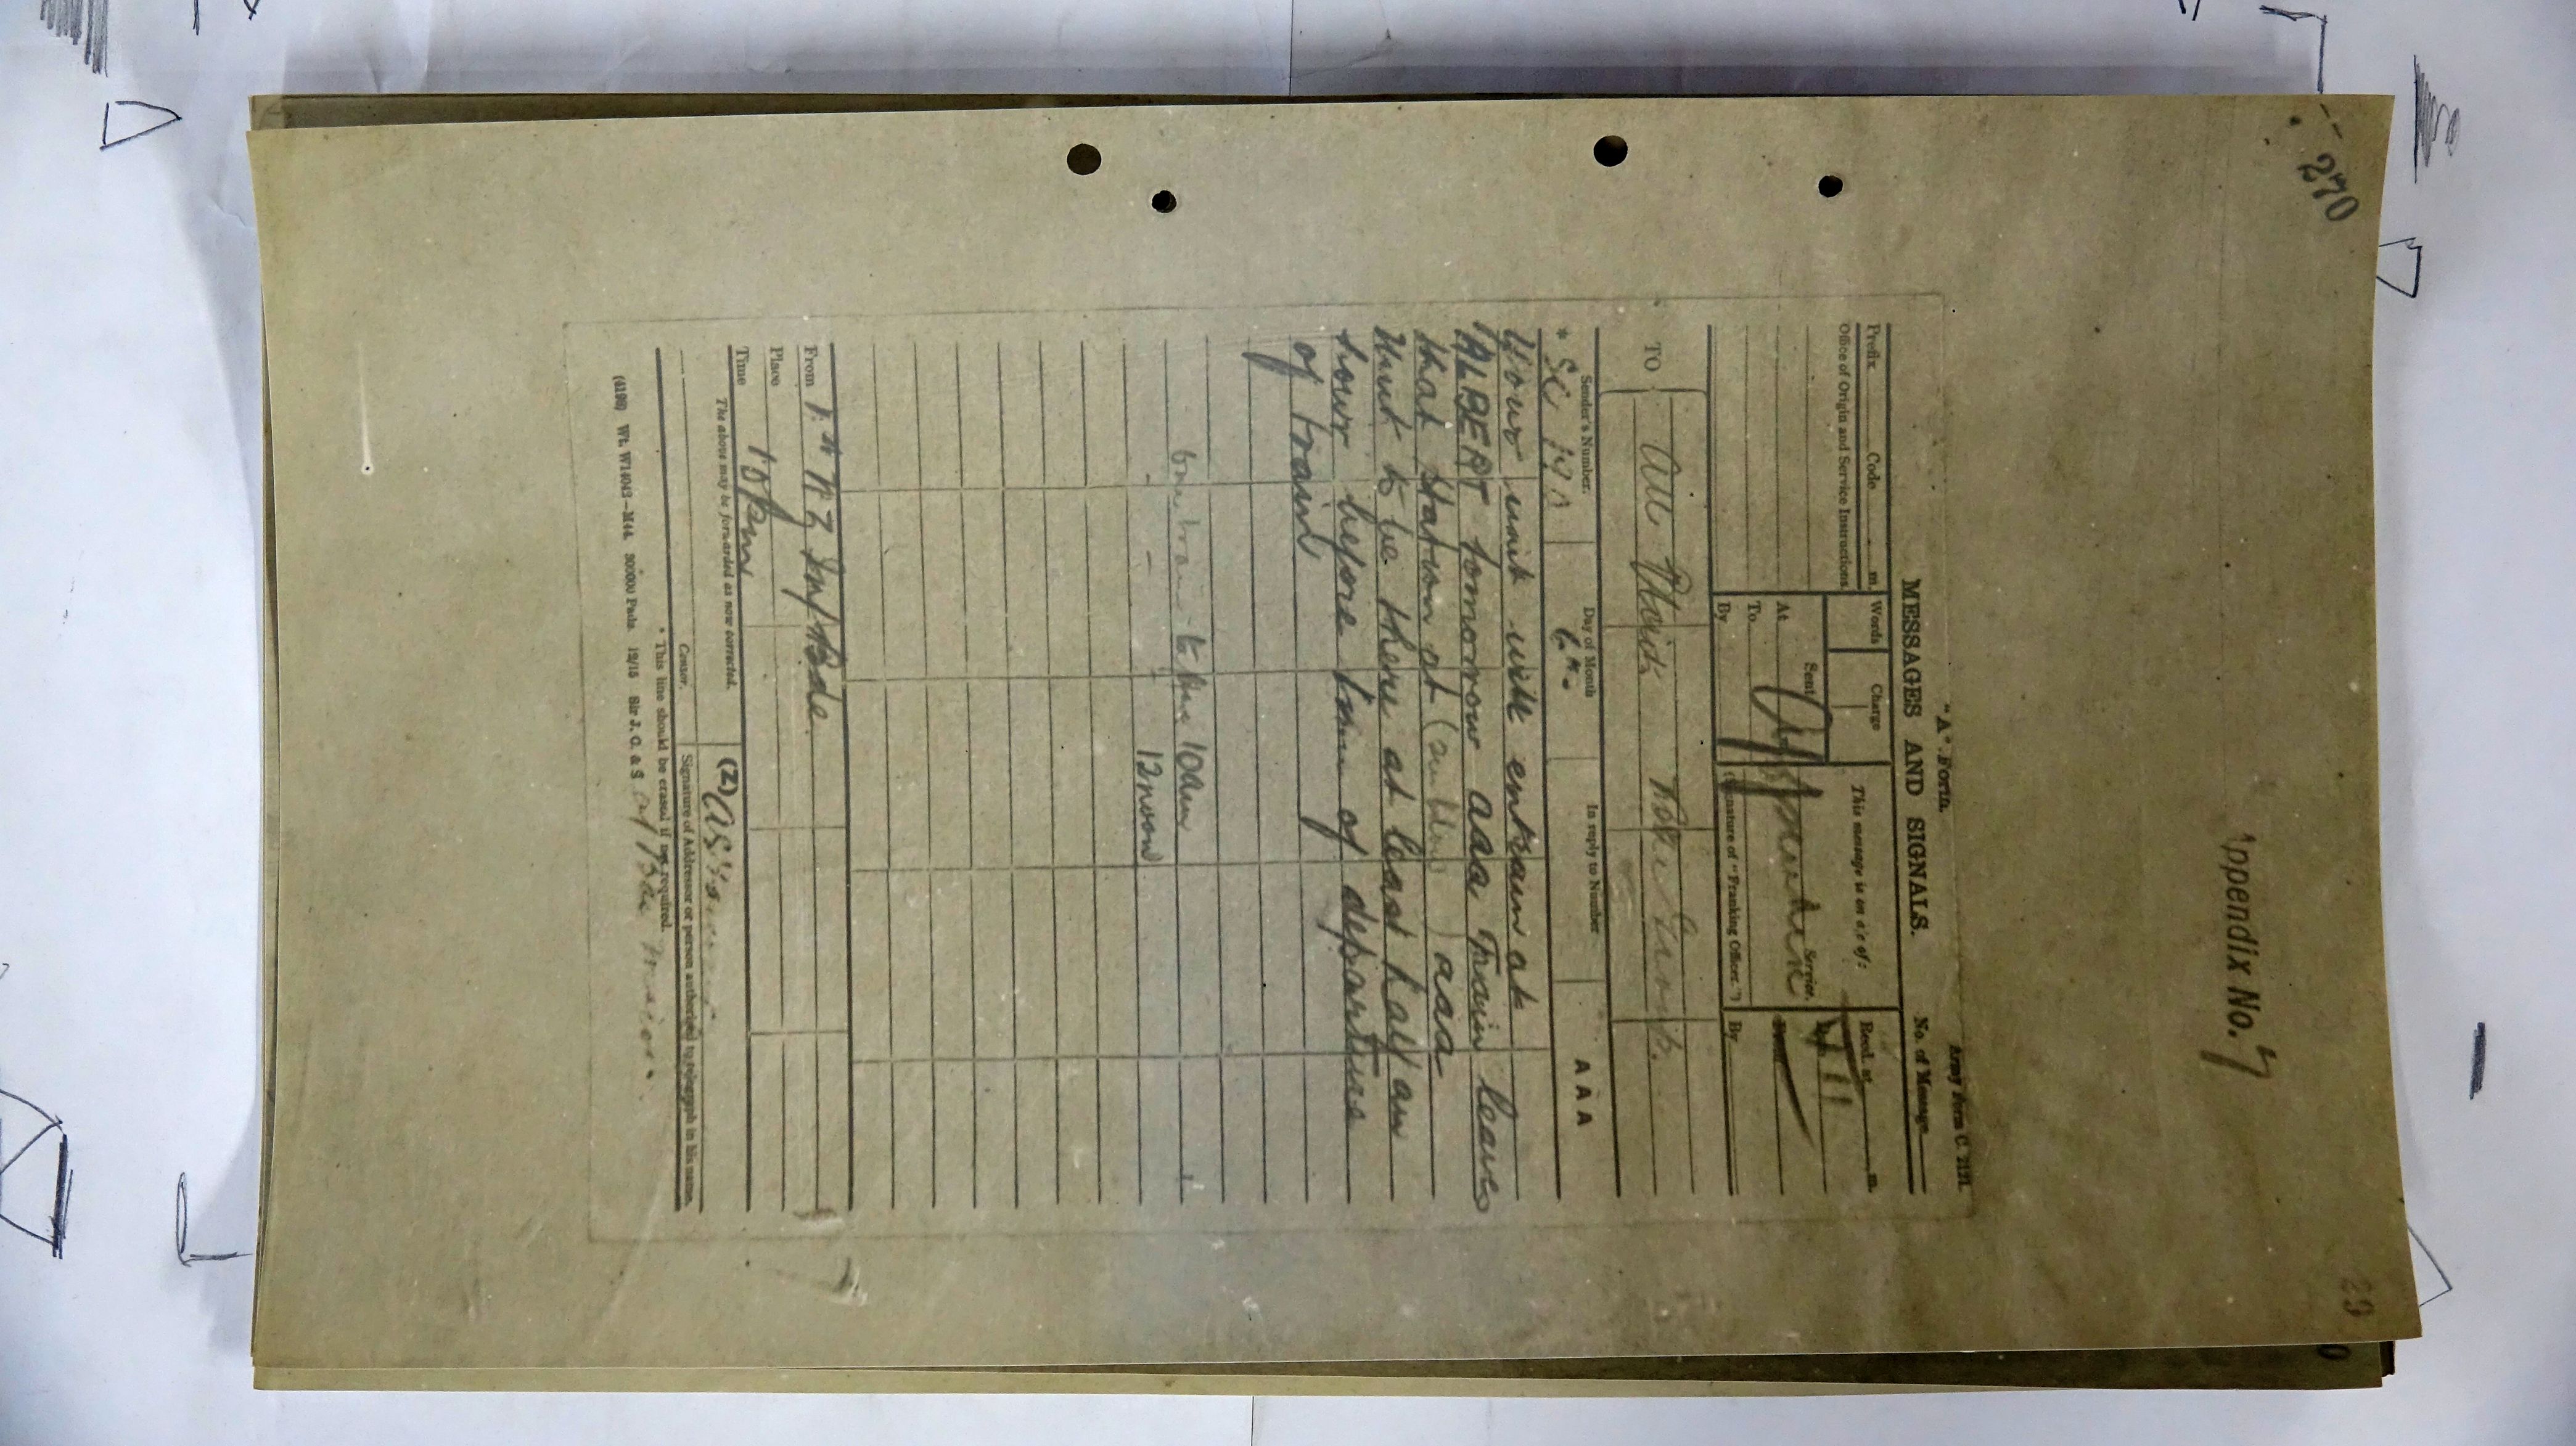 270
Appendix No. 7
29
"A" Form.
Army Form C. 2121.
MESSAGES AND SIGNALS.
No. of Message
Prefix Code m.
Words Charge
This message is on a/c of:
Recd. at m.
Office of Origin and Service Instructions.
Sent
Service.
At m.
To
By
(Signature of "Franking Officer.")
By
TO All
* Sender's Number.
Day of Month
In reply to Number
AAA
6th.
Your unit will entrain at
ALBERT tomorrow aaa Train leaves
that station at ( ) aaa
Unit to be there at least half an
hour before time of departure
of train
10am
12 noon
From N Z Inf Bde.
Place
Time 10pm
The above may be forwarded as now corrected.
(Z)
Censor.
Signature of Addressor or person authorised to telegraph in his name.
* This line should be erased if not required.
(4198) Wt. W14042—M44. 300000 Pads. 12/15 Sir J. C. & S.